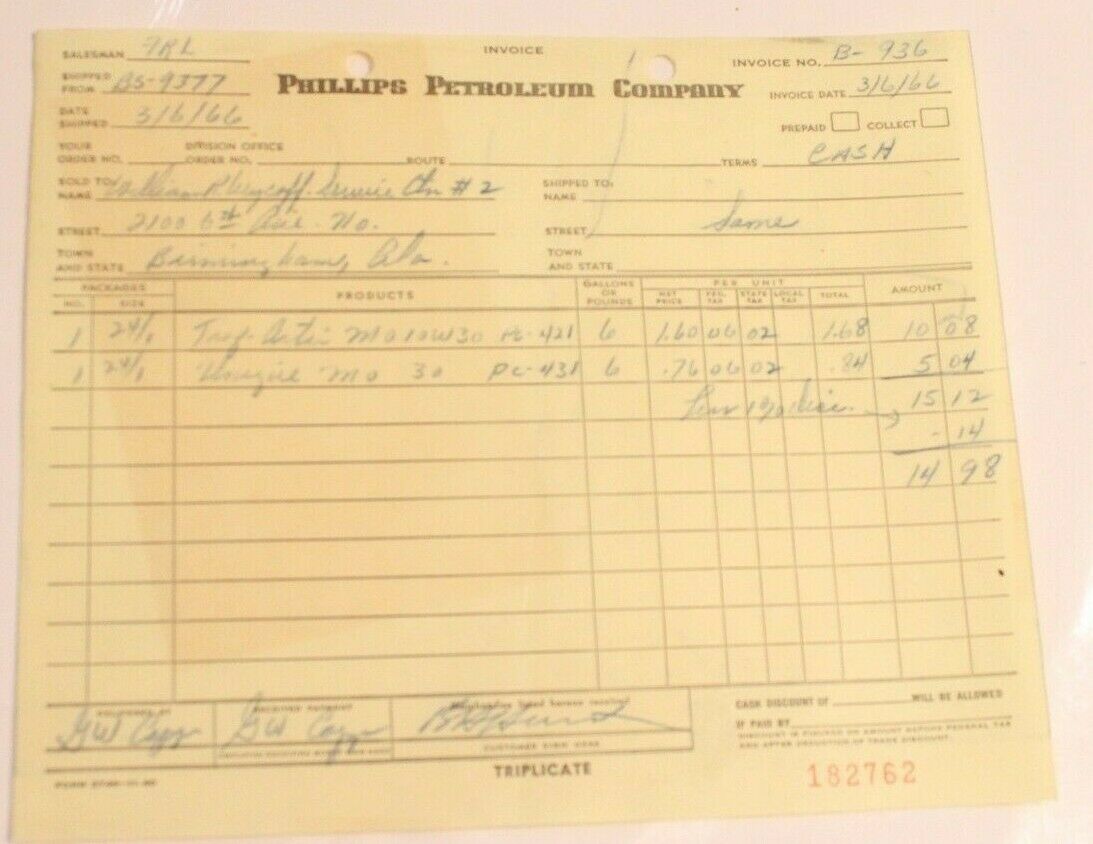 INVOICE
SALESMAN FRL
INVOICE NO. B-936
SHIPPED FROM BS-9377
PHILLIPS PETROLEUM COMPANY
INVOICE DATE 3/6/66
DATE SHIPPED 3/6/66
PREPAID COLLECT
YOUR ORDER NO. DIVISION OFFICE ORDER NO. ROUTE TERMS CASH
SOLD TO: NAME William R Wycoff Service Ctn #2
SHIPPED TO: NAME
STREET 2100 6th Ave. No.
STREET Same
TOWN AND STATE Birmingham, Ala.
TOWN AND STATE
PACKAGES PRODUCTS GALLONS OR POUNDS PER UNIT AMOUNT
NO. SIZE NET PRICE FED. TAX STATE TAX LOCAL TAX TOTAL
1 24/1 Trop-Artic MO 10W30 PC-421 6 1.60 06 02 1.68 10 08
1 24/1 Unique MO 30 PC-431 6 .76 06 02 .84 5 04
Less 1% Disc. 15 12
- 14
14 98
CASH DISCOUNT OF WILL BE ALLOWED
IF PAID BY
DISCOUNT IS FIGURED ON AMOUNT BEFORE FEDERAL TAX
AND AFTER DEDUCTION OF TRADE DISCOUNT
RECEIVED PAYMENT
GW GW
CUSTOMER SIGN HERE
TRIPLICATE
182762
FORM